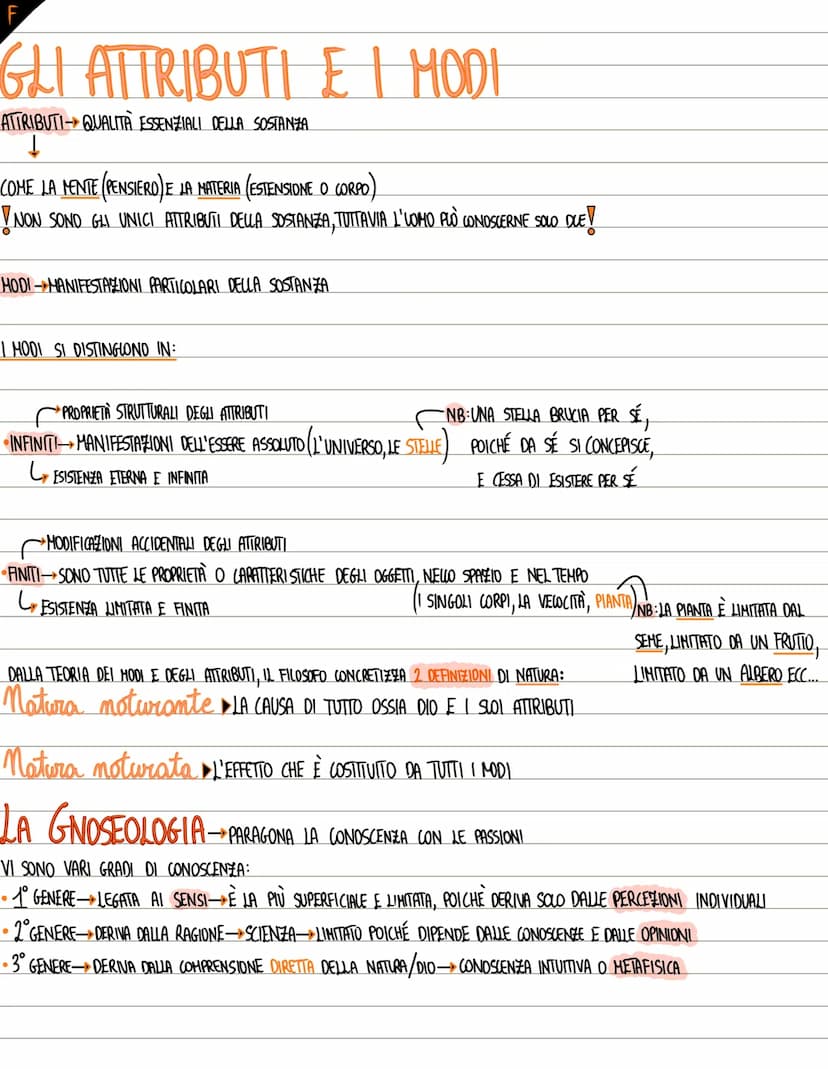 F
GLI ATTRIBUTI E I MODI
ATTRIBUTI→ QUALITÀ ESSENZIALI DELLA SOSTANZA
↓
COME LA MENTE (PENSIERO) E LA MATERIA (ESTENSIONE O CORPO)
! NON SONO GLI UNICI ATTRIBUTI DELLA SOSTANZA, TUTTAVIA L'UOMO PUÒ CONOSCERNE SOLO DUE!
MODI→MANIFESTAZIONI PARTICOLARI DELLA SOSTANZA
I MODI SI DISTINGUONO IN:
→PROPRIETÀ STRUTTURALI DEGLI ATTRIBUTI
•INFINITI→ MANIFESTAZIONI DELL'ESSERE ASSOLUTO (L'UNIVERSO, LE STELLE)
↳ ESISTENZA ETERNA E INFINITA
NB: UNA STELLA BRUCIA PER SÉ,
POICHÉ DA SÉ SI CONCEPISCE,
E CESSA DI ESISTERE PER SÉ
→MODIFICAZIONI ACCIDENTALI DEGLI ATTRIBUTI
•FINITI→ SONO TUTTE LE PROPRIETÀ O CARATTERISTICHE DEGLI OGGETTI, NELLO SPAZIO E NEL TEMPO
(I SINGOLI CORPI, LA VELOCITÀ, PIANTA)
↳ ESISTENZA LIMITATA E FINITA
NB: LA PIANTA È LIMITATA DAL
SEME, LIMITATO DA UN FRUTTO,
LIMITATO DA UN ALBERO ECC...
DALLA TEORIA DEI MODI E DEGLI ATTRIBUTI, IL FILOSOFO CONCRETIZZA 2 DEFINIZIONI DI NATURA:
Natura naturante ▸LA CAUSA DI TUTTO OSSIA DIO E I SUOI ATTRIBUTI
Natura naturata ▸L'EFFETTO CHE È COSTITUITO DA TUTTI I MODI
LA GNOSEOLOGIA→PARAGONA LA CONOSCENZA CON LE PASSIONI
VI SONO VARI GRADI DI CONOSCENZA:
• 1° GENERE→LEGATA AI SENSI→È LA PIÙ SUPERFICIALE E LIMITATA, POICHÈ DERIVA SOLO DALLE PERCEZIONI INDIVIDUALI
• 2° GENERE→DERIVA DALLA RAGIONE→SCIENZA→LIMITATO POICHÉ DIPENDE DALLE CONOSCENZE E DALLE OPINIONI
• 3° GENERE→DERIVA DALLA COMPRENSIONE DIRETTA DELLA NATURA/DIO→ CONOSCENZA INTUITIVA O METAFISICA